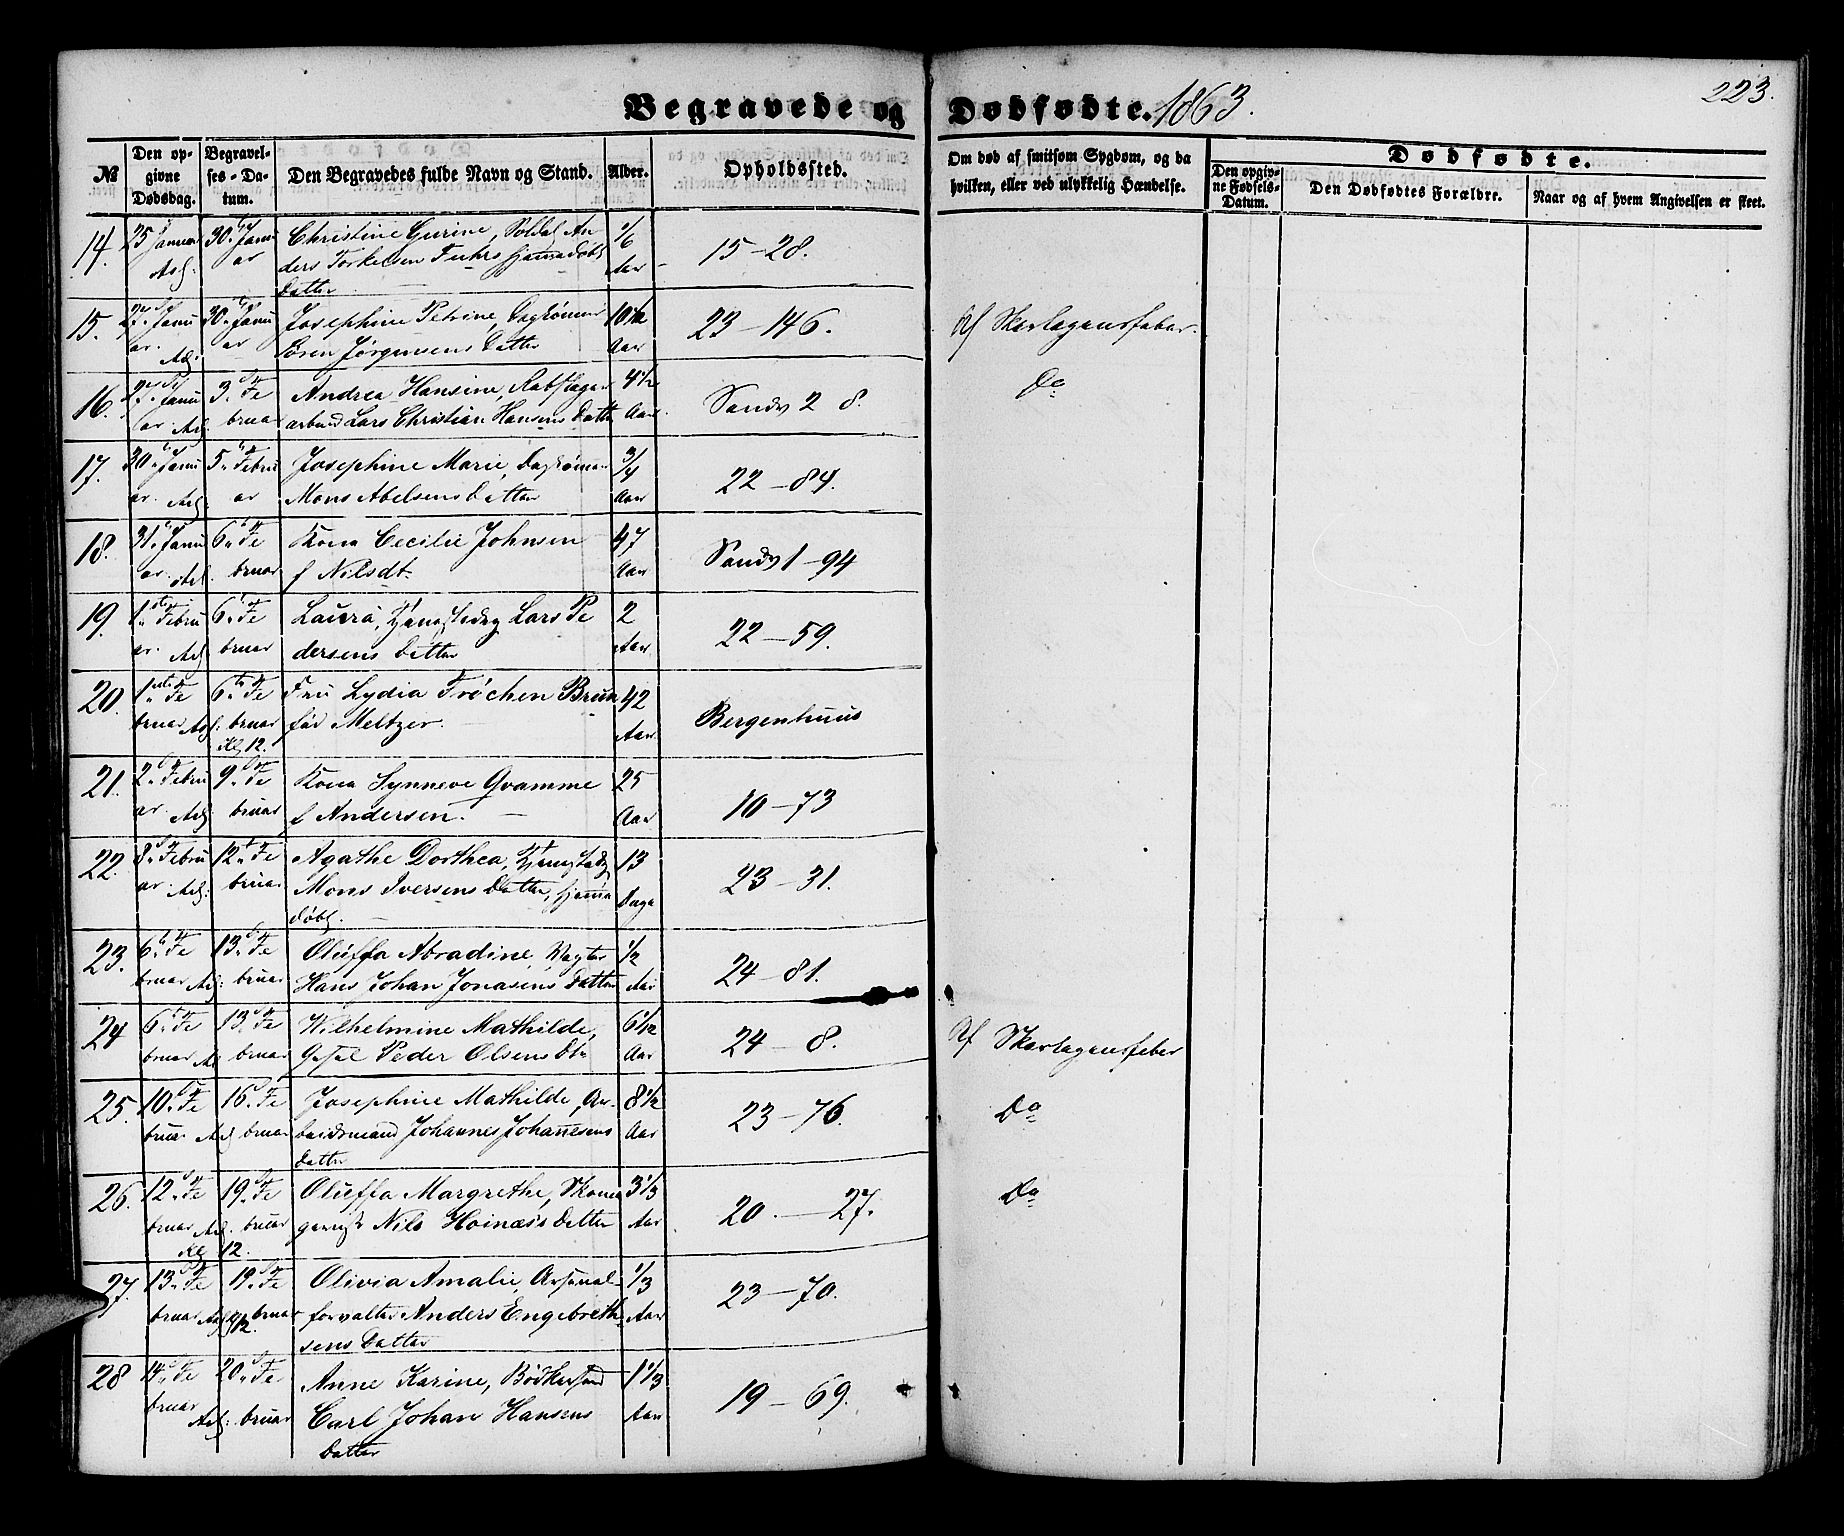 223.
Begravede og Dødfødte. 1863.
№
Den opgivne Dødsdag.
Begravelses-Datum.
Den Begravedes fulde Navn og Stand.
Alder.
Opholdssted.
Om død af smitsom Sygdom, og da hvilken, eller ved ulykkelig Hændelse.
Dødfødte.
Den opgivne Fødsels-Datum.
Den Dødfødtes Forældre.
Naar og af hvem Angivelsen er skeet.
14. 25 Januar 30 Janu
ar
Christine Gurine, Soldat An
ders Torkelsen Fuhrs hjemmedøbt
Datter
1/6
Aar
15-28.
15. 27 Janu
ar. 30 Janu
ar
Josephine Petrine, Dagrømer
Søren Jørgensens Datter
10½
Aar
23-146.
Af Skarlagensfeber.
16. 27 Janu
ar. 3 Fe
bruar
Andrea Hansine, Rebslager
arbeid Lars Christian Hansens Datter
4½
Aar.
Sandv 2 8.
Do
17. 30 Janu
ar. 5 Febru
ar
Josephine Marie,
Mons Abelsens Datter
3/4
Aar
22-84.
18. 31 Janu
ar. 6 Fe
bruar
Kona Cecilie Johnsen
f Nilsdt.
47
Aar
Sandv 1-94
19. 1 Febru
ar. 6 Fe
bruar
Laura, Lars Pe
dersens Datter
2
Aar.
22-59.
20. 1 Fe
bruar 6 Fe
bruar
Kl 12.
Fru Lydia Frøchen Brun
før Meltzer.
42
Aar.
Bergenhuus
21. 2 Febru
ar 9 Fe
bruar
Kona Synneve Qvamme
f Andersen.
25
Aar
10-73
22. 8 Febru
ar 12 Fe
bruar
Agathe Dorthea,
Mons Iversens Datter, hjemme
døbt.
13
Dage
23-31.
23. 6 Fe
bruar 13 Fe
bruar
Oluffa Abradine, Vægter
Hans Johan Jonasens Datter
½
Aar
24-81.
24 6 Fe
bruar 13 Fe
bruar
Wilhelmine Mathilde,
Peder Olsens Dtr
6½
Aar
24-8.
Af Skarlagensfeber
25. 10 Fe
bruar 16 Fe
bruar
Josephine Mathilde, Ar-
beidsmand Johannes Johannesens
Datter
8½
Aar
23-76.
Do
26. 12 Fe
bruar 19 Fe
bruar
Kl 12.
Oluffa Margrethe, Skoma
Nils Hoinæs's Datter
3⅓
Aar
20.-27.
Do
27. 13 Fe
bruar 19 Fe
bruar
12.
Olivia Amalie, Arsenal-
forvalter Anders Engebreth-
sens Datter
⅓
Aar
23-70.
28 14 Fe
bruar 20 Fe
bruar
Anne Karine, Bødkersvend
Carl Johan Hansens
Datter
1⅓
Aar
19-69.